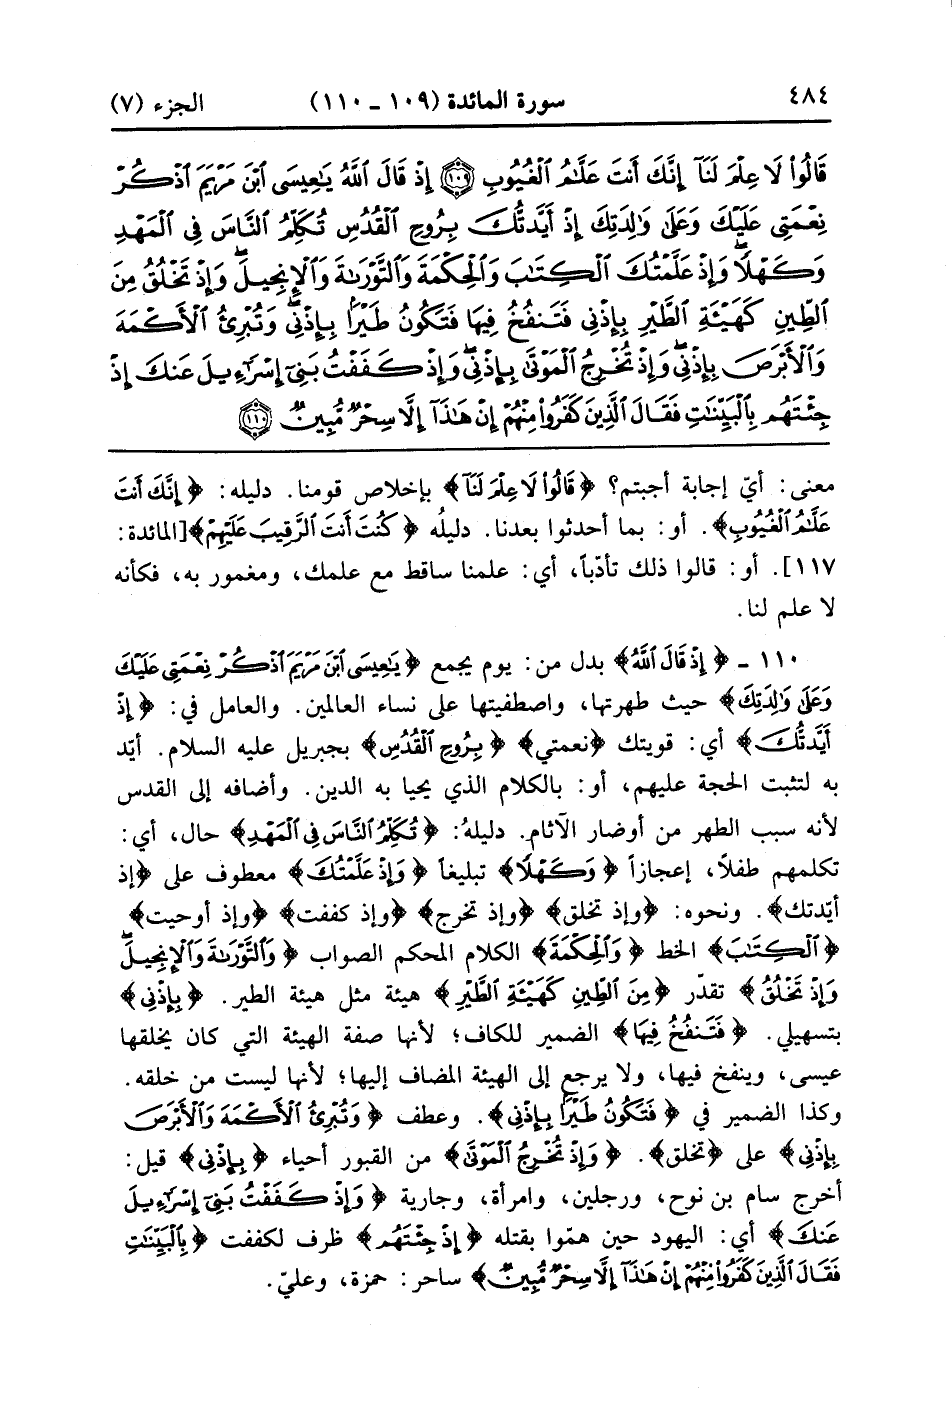 ٤٨٤ سورة المائدة (١٠٩ ـ ١١٠) الجزء (٧)
قَالُوا۟ لَا عِلْمَ لَنَآ إِنَّكَ أَنتَ عَلَّٰمُ ٱلْغُيُوبِ ﴿١٠٩﴾ إِذْ قَالَ ٱللَّهُ يَٰعِيسَى ٱبْنَ مَرْيَمَ ٱذْكُرْ
نِعْمَتِى عَلَيْكَ وَعَلَىٰ وَٰلِدَتِكَ إِذْ أَيَّدتُّكَ بِرُوحِ ٱلْقُدُسِ تُكَلِّمُ ٱلنَّاسَ فِى ٱلْمَهْدِ
وَكَهْلًا ۖ وَإِذْ عَلَّمْتُكَ ٱلْكِتَٰبَ وَٱلْحِكْمَةَ وَٱلتَّوْرَىٰةَ وَٱلْإِنجِيلَ ۖ وَإِذْ تَخْلُقُ مِنَ
ٱلطِّينِ كَهَيْـَٔةِ ٱلطَّيْرِ بِإِذْنِى فَتَنفُخُ فِيهَا فَتَكُونُ طَيْرًۢا بِإِذْنِى ۖ وَتُبْرِئُ ٱلْأَكْمَهَ
وَٱلْأَبْرَصَ بِإِذْنِى ۖ وَإِذْ تُخْرِجُ ٱلْمَوْتَىٰ بِإِذْنِى ۖ وَإِذْ كَفَفْتُ بَنِىٓ إِسْرَٰٓءِيلَ عَنكَ إِذْ
جِئْتَهُم بِٱلْبَيِّنَٰتِ فَقَالَ ٱلَّذِينَ كَفَرُوا۟ مِنْهُمْ إِنْ هَٰذَآ إِلَّا سِحْرٌ مُّبِينٌ ﴿١١٠﴾
معنى: أيّ إجابة أجبتم؟ ﴿قَالُوا۟ لَا عِلْمَ لَنَآ﴾ بإخلاص قومنا. دليله: ﴿إِنَّكَ أَنتَ
عَلَّٰمُ ٱلْغُيُوبِ﴾. أو: بما أحدثوا بعدنا. دليلُه ﴿كُنتَ أَنتَ ٱلرَّقِيبَ عَلَيْهِمْ﴾[المائدة:
١١٧]. أو: قالوا ذلك تأدّباً، أي: علمنا ساقط مع علمك، ومغمور به، فكأنه
لا علم لنا.
١١٠ ـ ﴿إِذْ قَالَ ٱللَّهُ﴾ بدل من: يوم يجمع ﴿يَٰعِيسَى ٱبْنَ مَرْيَمَ ٱذْكُرْ نِعْمَتِى عَلَيْكَ
وَعَلَىٰ وَٰلِدَتِكَ﴾ حيث طهرتها، واصطفيتها على نساء العالمين. والعامل في: ﴿إِذْ
أَيَّدتُّكَ﴾ أي: قويتك ﴿نعمتي﴾ ﴿بِرُوحِ ٱلْقُدُسِ﴾ بجبريل عليه السلام. أيّد
به لتثبت الحجة عليهم، أو: بالكلام الذي يحيا به الدين. وأضافه إلى القدس
لأنه سبب الطهر من أوضار الآثام. دليلهُ: ﴿تُكَلِّمُ ٱلنَّاسَ فِى ٱلْمَهْدِ﴾ حال، أي:
تكلمهم طفلاً، إعجازاً ﴿وَكَهْلًا﴾ تبليغاً ﴿وَإِذْ عَلَّمْتُكَ﴾ معطوف على ﴿إذ
أيّدتك﴾. ونحوه: ﴿وإذ تخلق﴾ ﴿وإذ تخرج﴾ ﴿وإذ كففت﴾ ﴿وإذ أوحيت﴾
﴿ٱلْكِتَٰبَ﴾ الخط ﴿وَٱلْحِكْمَةَ﴾ الكلام المحكم الصواب ﴿وَٱلتَّوْرَىٰةَ وَٱلْإِنجِيلَ ۖ
وَإِذْ تَخْلُقُ﴾ تقدّر ﴿مِنَ ٱلطِّينِ كَهَيْـَٔةِ ٱلطَّيْرِ﴾ هيئة مثل هيئة الطير. ﴿بِإِذْنِى﴾
بتسهيلي. ﴿فَتَنفُخُ فِيهَا﴾ الضمير للكاف؛ لأنها صفة الهيئة التي كان يخلقها
عيسى، وينفخ فيها، ولا يرجع إلى الهيئة المضاف إليها؛ لأنها ليست من خلقه.
وكذا الضمير في ﴿فَتَكُونُ طَيْرًۢا بِإِذْنِى﴾. وعطف ﴿وَتُبْرِئُ ٱلْأَكْمَهَ وَٱلْأَبْرَصَ
بِإِذْنِى﴾ على ﴿تخلق﴾. ﴿وَإِذْ تُخْرِجُ ٱلْمَوْتَىٰ﴾ من القبور أحياء ﴿بِإِذْنِى﴾ قيل:
أخرج سام بن نوح، ورجلين، وامرأة، وجارية ﴿وَإِذْ كَفَفْتُ بَنِىٓ إِسْرَٰٓءِيلَ
عَنكَ﴾ أي: اليهود حين همّوا بقتله ﴿إِذْ جِئْتَهُم﴾ ظرف لكففت ﴿بِٱلْبَيِّنَٰتِ
فَقَالَ ٱلَّذِينَ كَفَرُوا۟ مِنْهُمْ إِنْ هَٰذَآ إِلَّا سِحْرٌ مُّبِينٌ﴾ ساحر: حمزة، وعليّ.